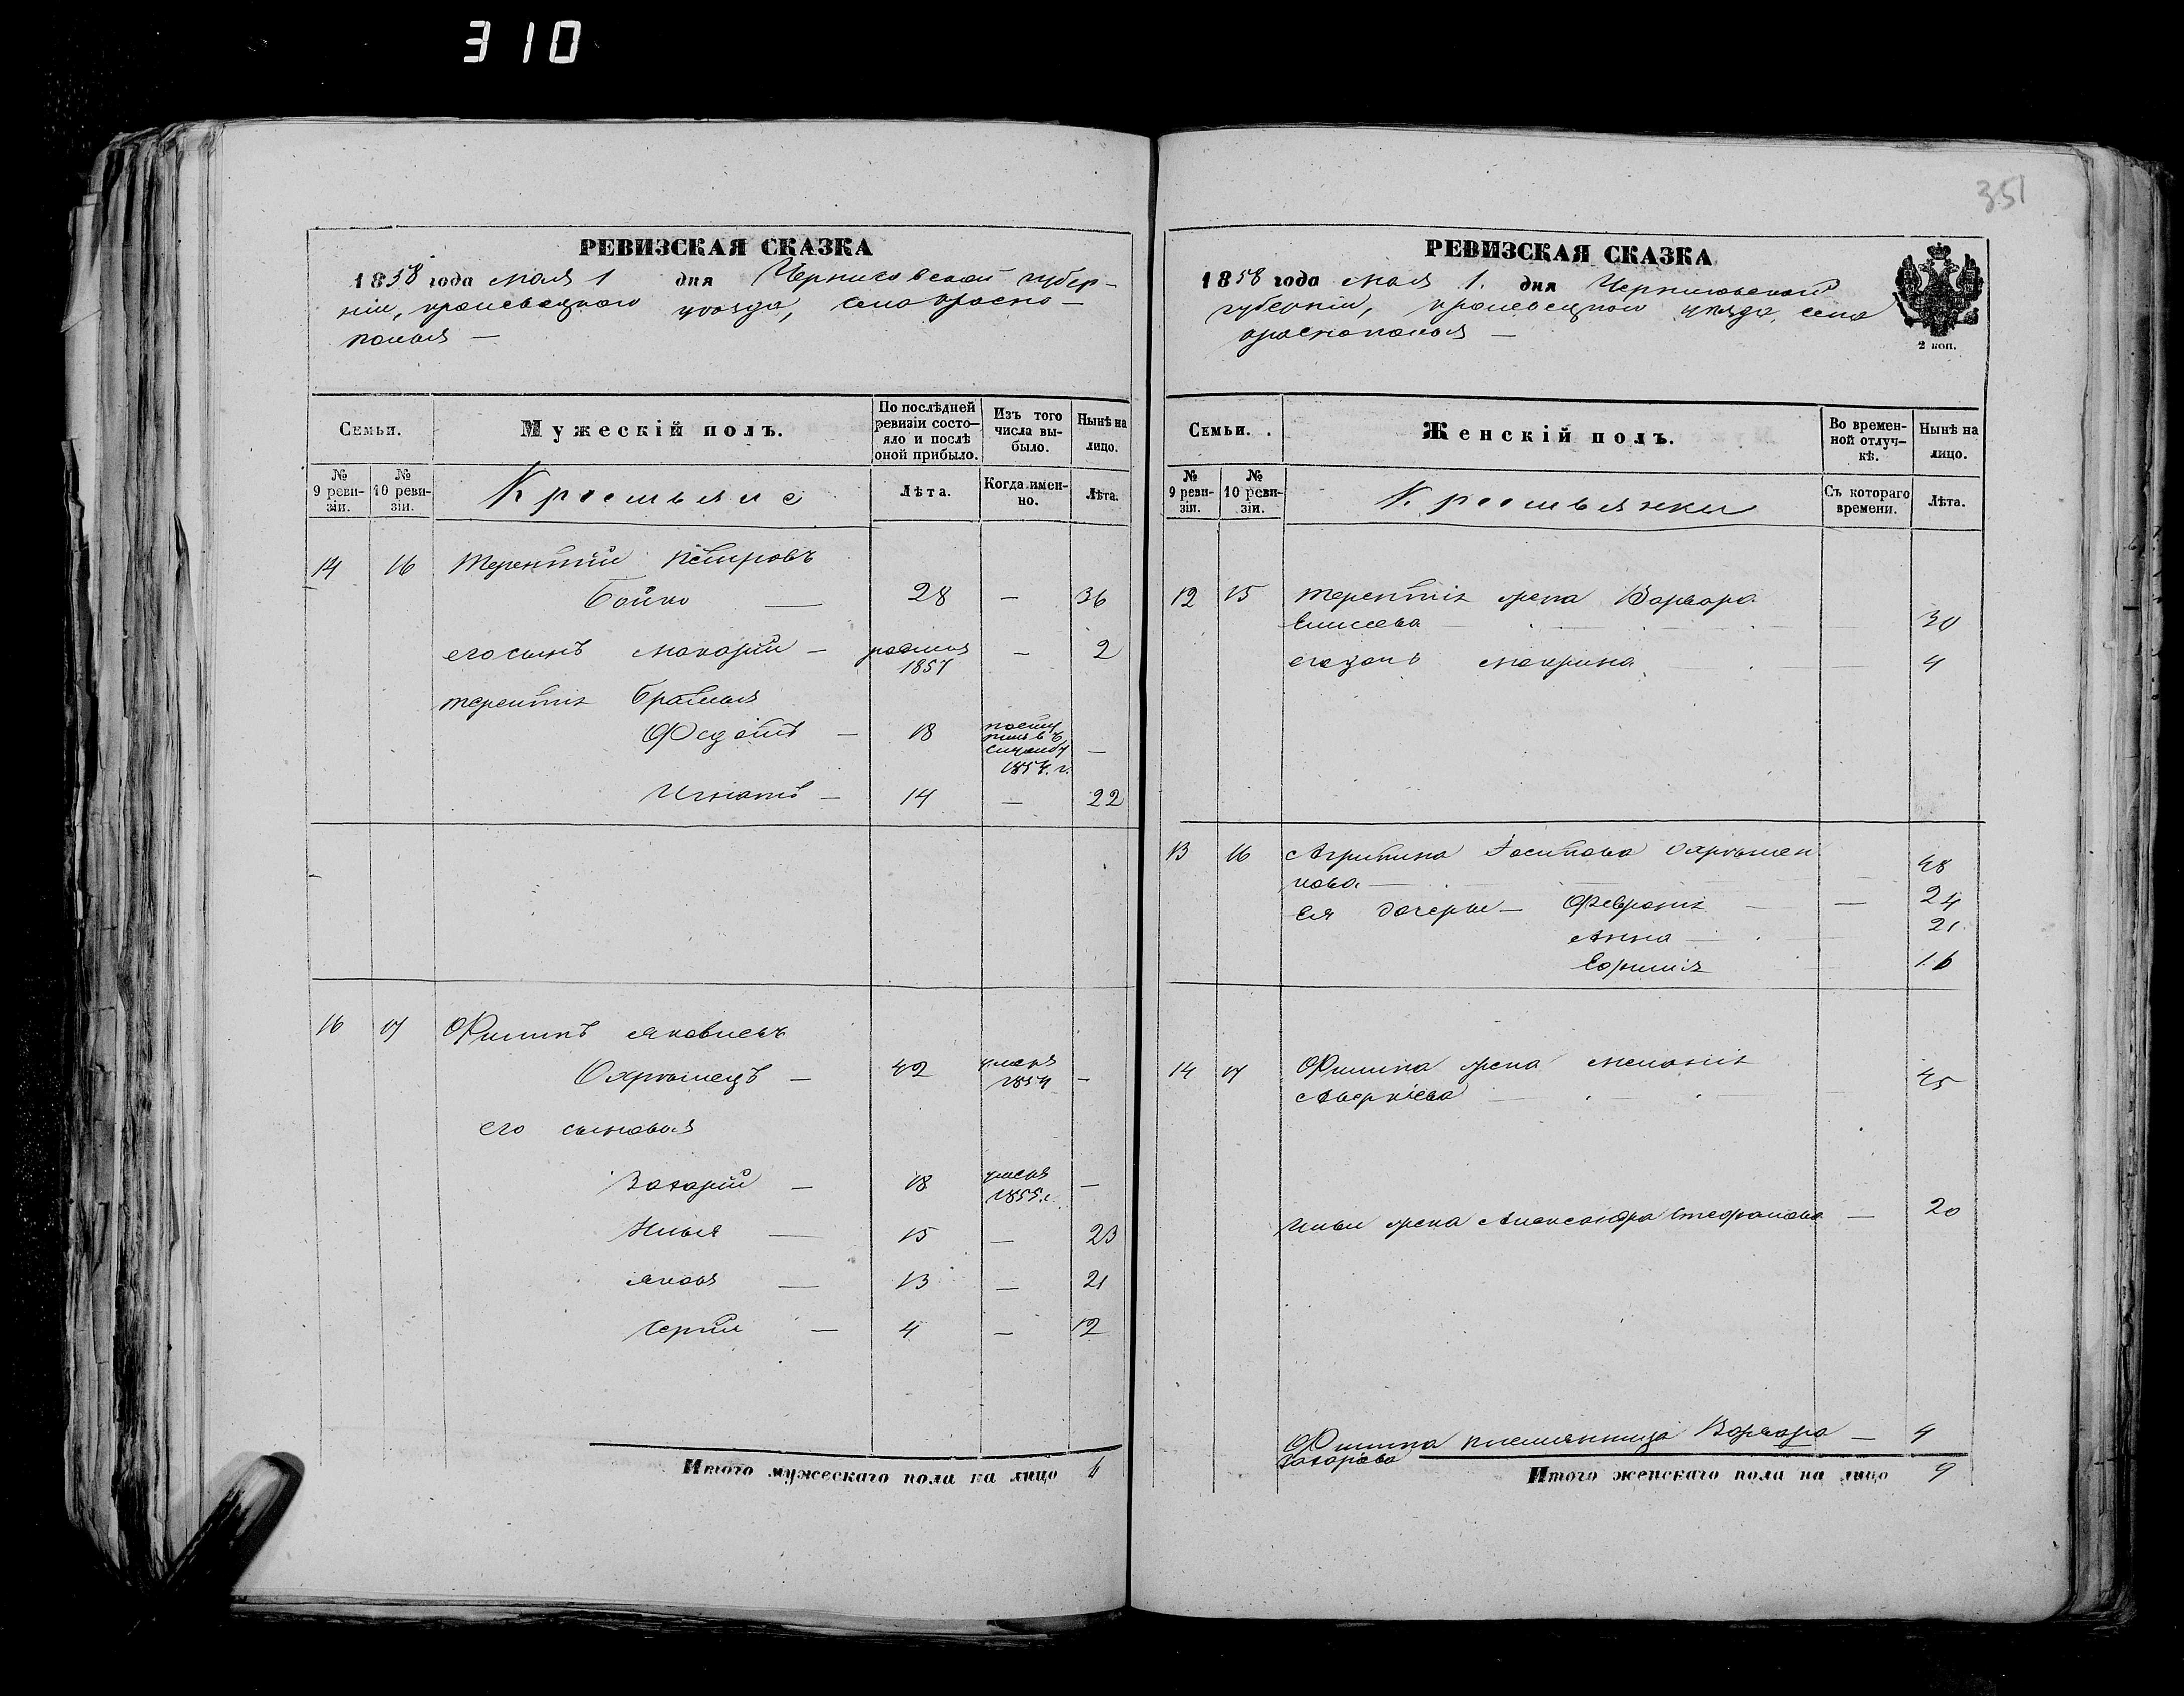 310
351
РЕВИЗСКАЯ СКАЗКА
1858 года мая 1 дня Черниговской губер-
ніи, кролевецкаго уѣзда, села красно-
полья —
Семьи.
Мужескій полъ.
По послѣдней ревизіи состо-яло и послѣ оной прибыло.
Изъ того числа вы-было.
Нынѣ на лицо.
№ 9 реви-зіи.
№ 10 реви-зіи.
Крестьяне
Лѣта.
Когда имен-но.
Лѣта.
14 16 Терентій Петровъ
Бойко — 28 — 36
его сынъ Макарій — родился 1857 — 2
Терентія братья
Федотъ — 18
1854 г. —
Игнатъ — 14 — 22
16 17 Филипъ Яковлевъ
Охрѣмецъ — 42 умеръ 1854 —
его сыновья
Захарій — 18 умеръ 1855 г. —
Илья — 15 — 23
Яковъ — 13 — 21
Сергій — 4 — 12
Итого мужескаго пола на лицо 6
РЕВИЗСКАЯ СКАЗКА
1858 года мая 1. дня Черниговской
губерніи, кролевецкаго уѣзда, села
краснополья —
2 коп.
Семьи.
Женскій полъ.
Во времен-ной отлуч-кѣ.
Нынѣ на лицо.
№ 9 реви-зіи.
№ 10 реви-зіи.
Крестьянки
Съ котораго времени.
Лѣта.
12 15 Терентія жена Варвара
Елисеева — 30
его дочь Макрина — 4
13 16 Агрипина Іосипова Охрѣмен
кова — 48
Ея дочери — Февронія — 24
Анна — 21
Ефимія 16
14 17 Филипа жена Меланія
Аверкіева — 45
Ильи жена Александра Стефанова — 20
Филипа племянница Варвара — 4
Захаріева
Итого женскаго пола на лицо 9